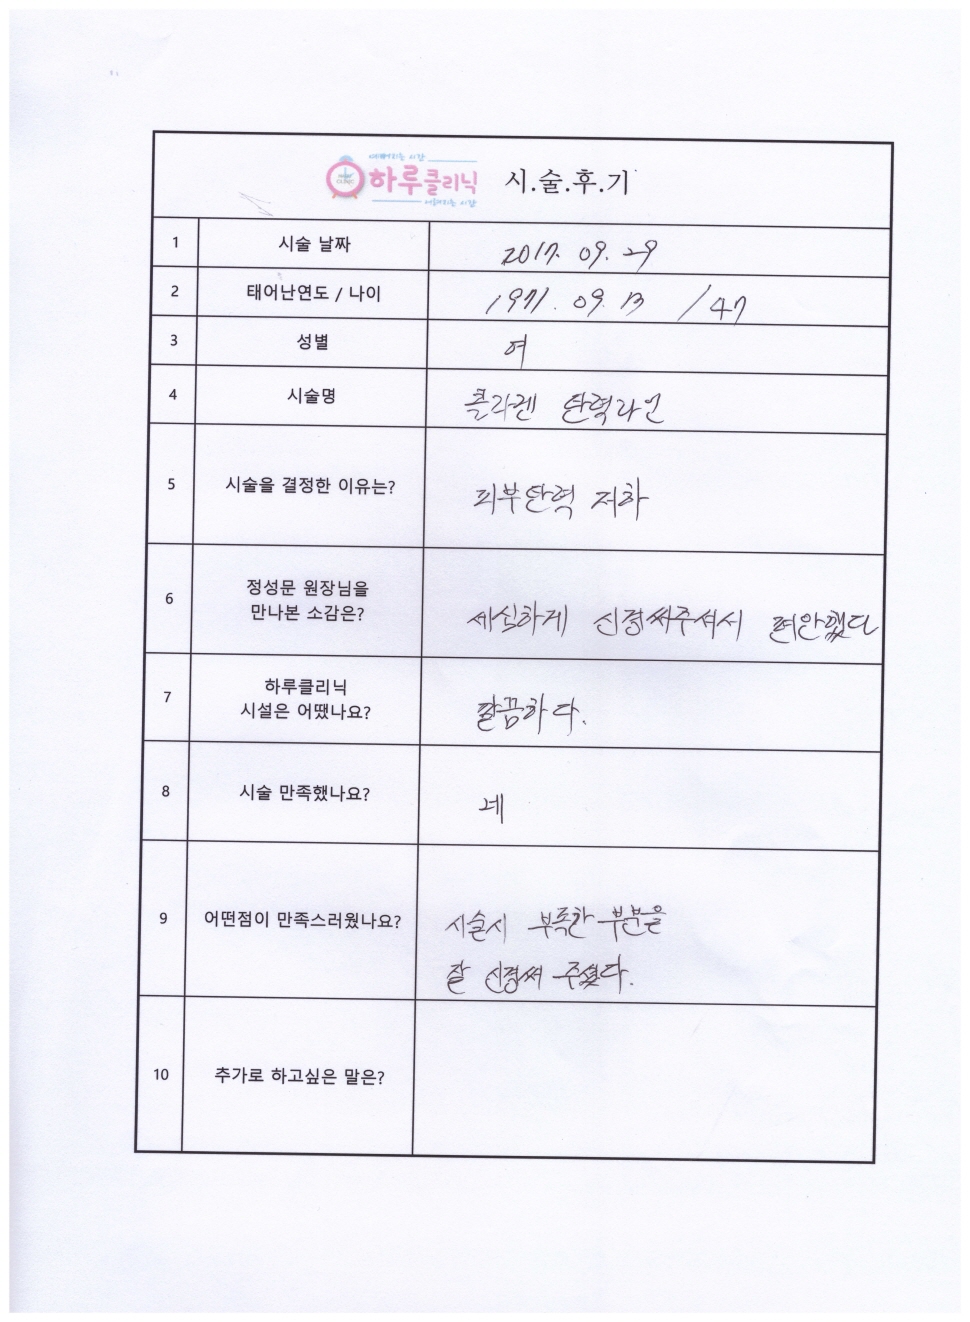 예뻐지는 시간
하루클리닉 시.술.후.기
어려지는 시간
1 시술 날짜 2017. 09. 29
2 태어난연도 / 나이 1971. 09. 13 / 47
3 성별 여
4 시술명 콜라겐 탄력라인
5 시술을 결정한 이유는? 피부탄력 저하
6 정성문 원장님을
만나본 소감은? 세심하게 신경써주셔서 편안했다
7 하루클리닉
시설은 어땠나요? 깔끔하다.
8 시술 만족했나요? 네
9 어떤점이 만족스러웠나요? 시술시 부족한 부분을
잘 신경써 주셨다.
10 추가로 하고싶은 말은?